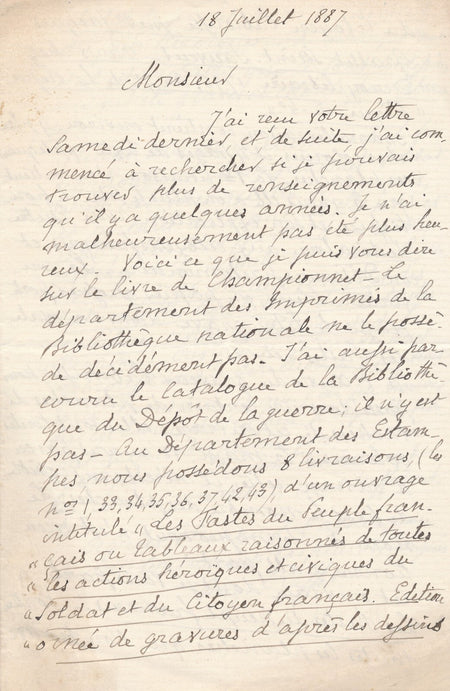 18 Juillet 1887
Monsieur
J'ai reçu votre lettre
Samedi dernier, et, de suite, j'ai com-
mencé à rechercher si je pouvais
trouver plus de renseignements
qu'il y a quelques années. Je n'ai
malheureusement pas été plus heu-
reux. Voici ce que je puis vous dire
sur le livre de Championnet - Le
département des Imprimés de la
Bibliothèque nationale ne le possè-
de décidément pas - J'ai aussi par-
couru le Catalogue de la Bibliothè
que du Dépôt de la guerre ; il n'y est
pas - Au Département des Estam-
pes, nous possédons 8 livraisons, (les
nos 1, 33, 34, 35, 36, 37, 42, 43) d'un ouvrage
intitulé „ Les Fastes du Peuple fran-
„ çais ou tableaux raisonnés de toutes
„ les actions héroïques et civiques du
„ Soldat et du Citoyen français. Edition
„ ornée de gravures d'après les dessins